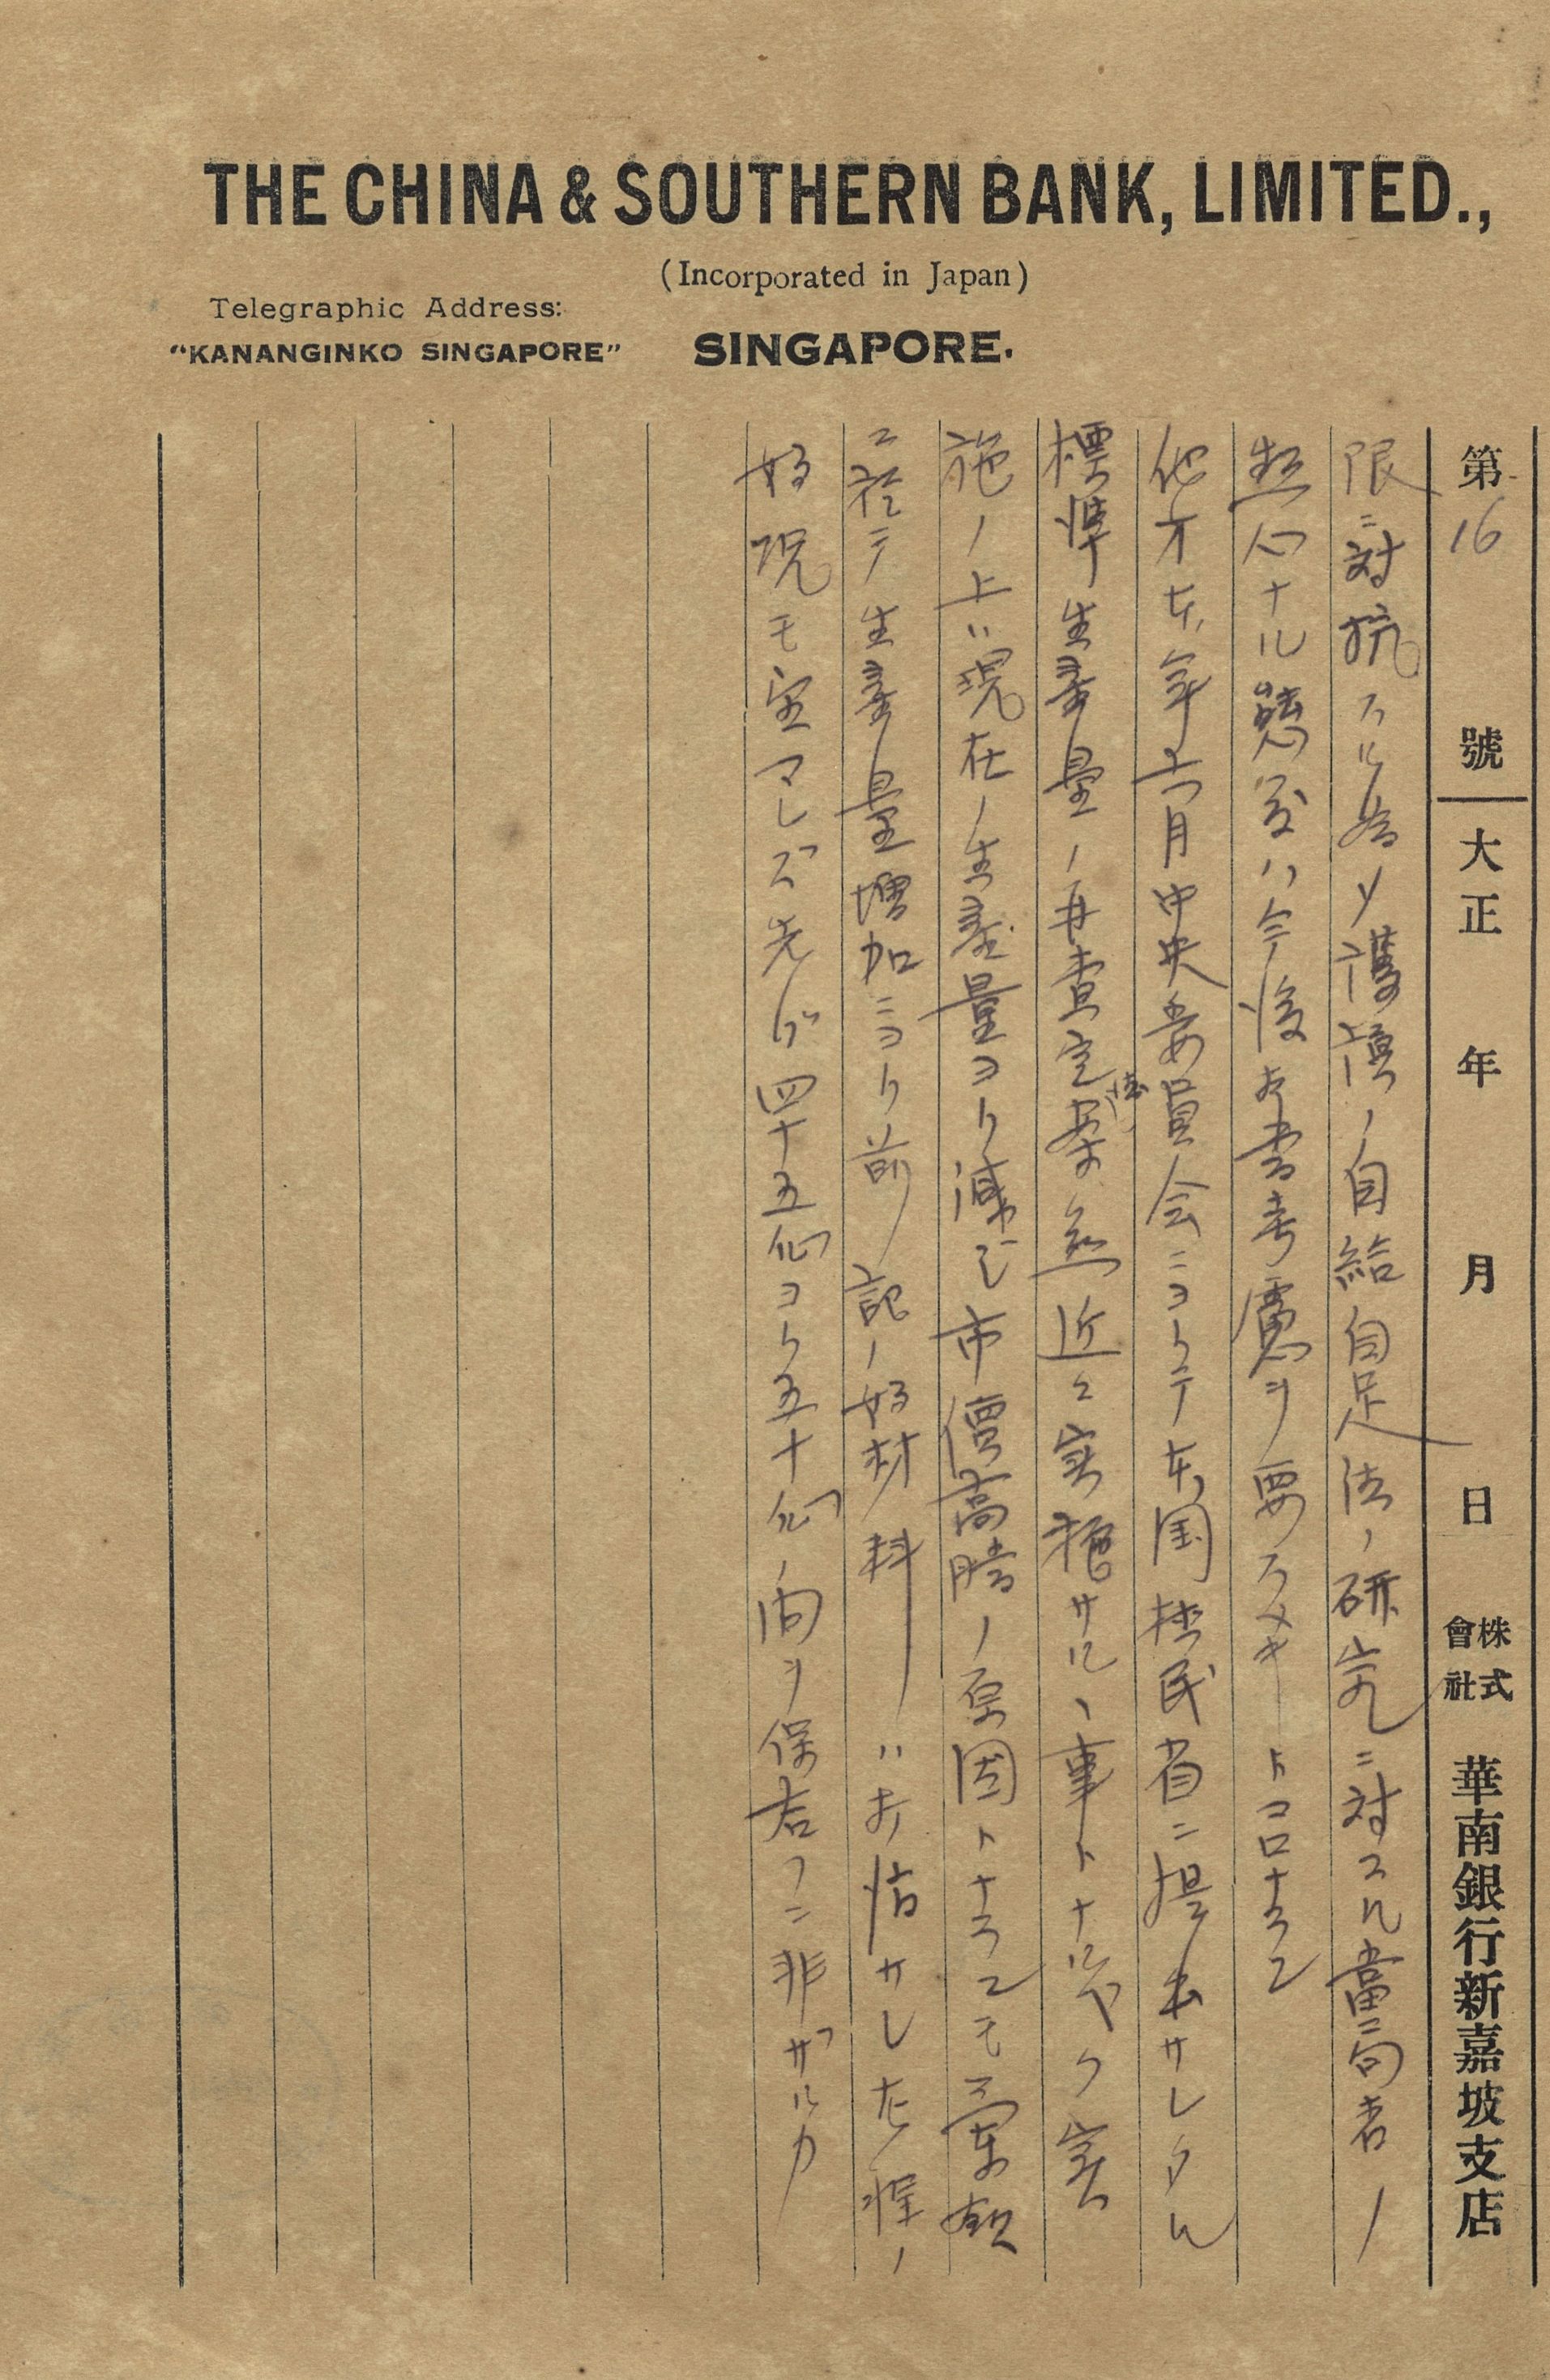 THE CHINA & SOUTHERN BANK, LIMITED.,
(Incorporated in Japan)
Telegraphic Address:
"KANANGINKO SINGAPORE"
SINGAPORE.
第16號 大正 年 月 日 株式會社 華南銀行新嘉坡支店
限ニ対抗スル為メ護謨ノ自給自足法ノ研究ニ対スル當局者ノ
熱心ナル態度ハ今後尚考慮ヲ要スベキトコロナラン
他方本年六月中央委員会ニヨリテ本国植民省ニ提出サレタル
標準生産量ノ再査定案 近ク実施サルヽ事トナルベク実
施ノ上ハ現在ノ生産量ヨリ減ジ市價高騰ノ原因トナランモ蘭領
ニ於テ生産量増加ニヨリ前記ノ好材料ハ サレ ノ
好況モ望マレズ先ヅ四十五仙ヨリ五十仙ノ間ヲ保 フニ非ザルカ